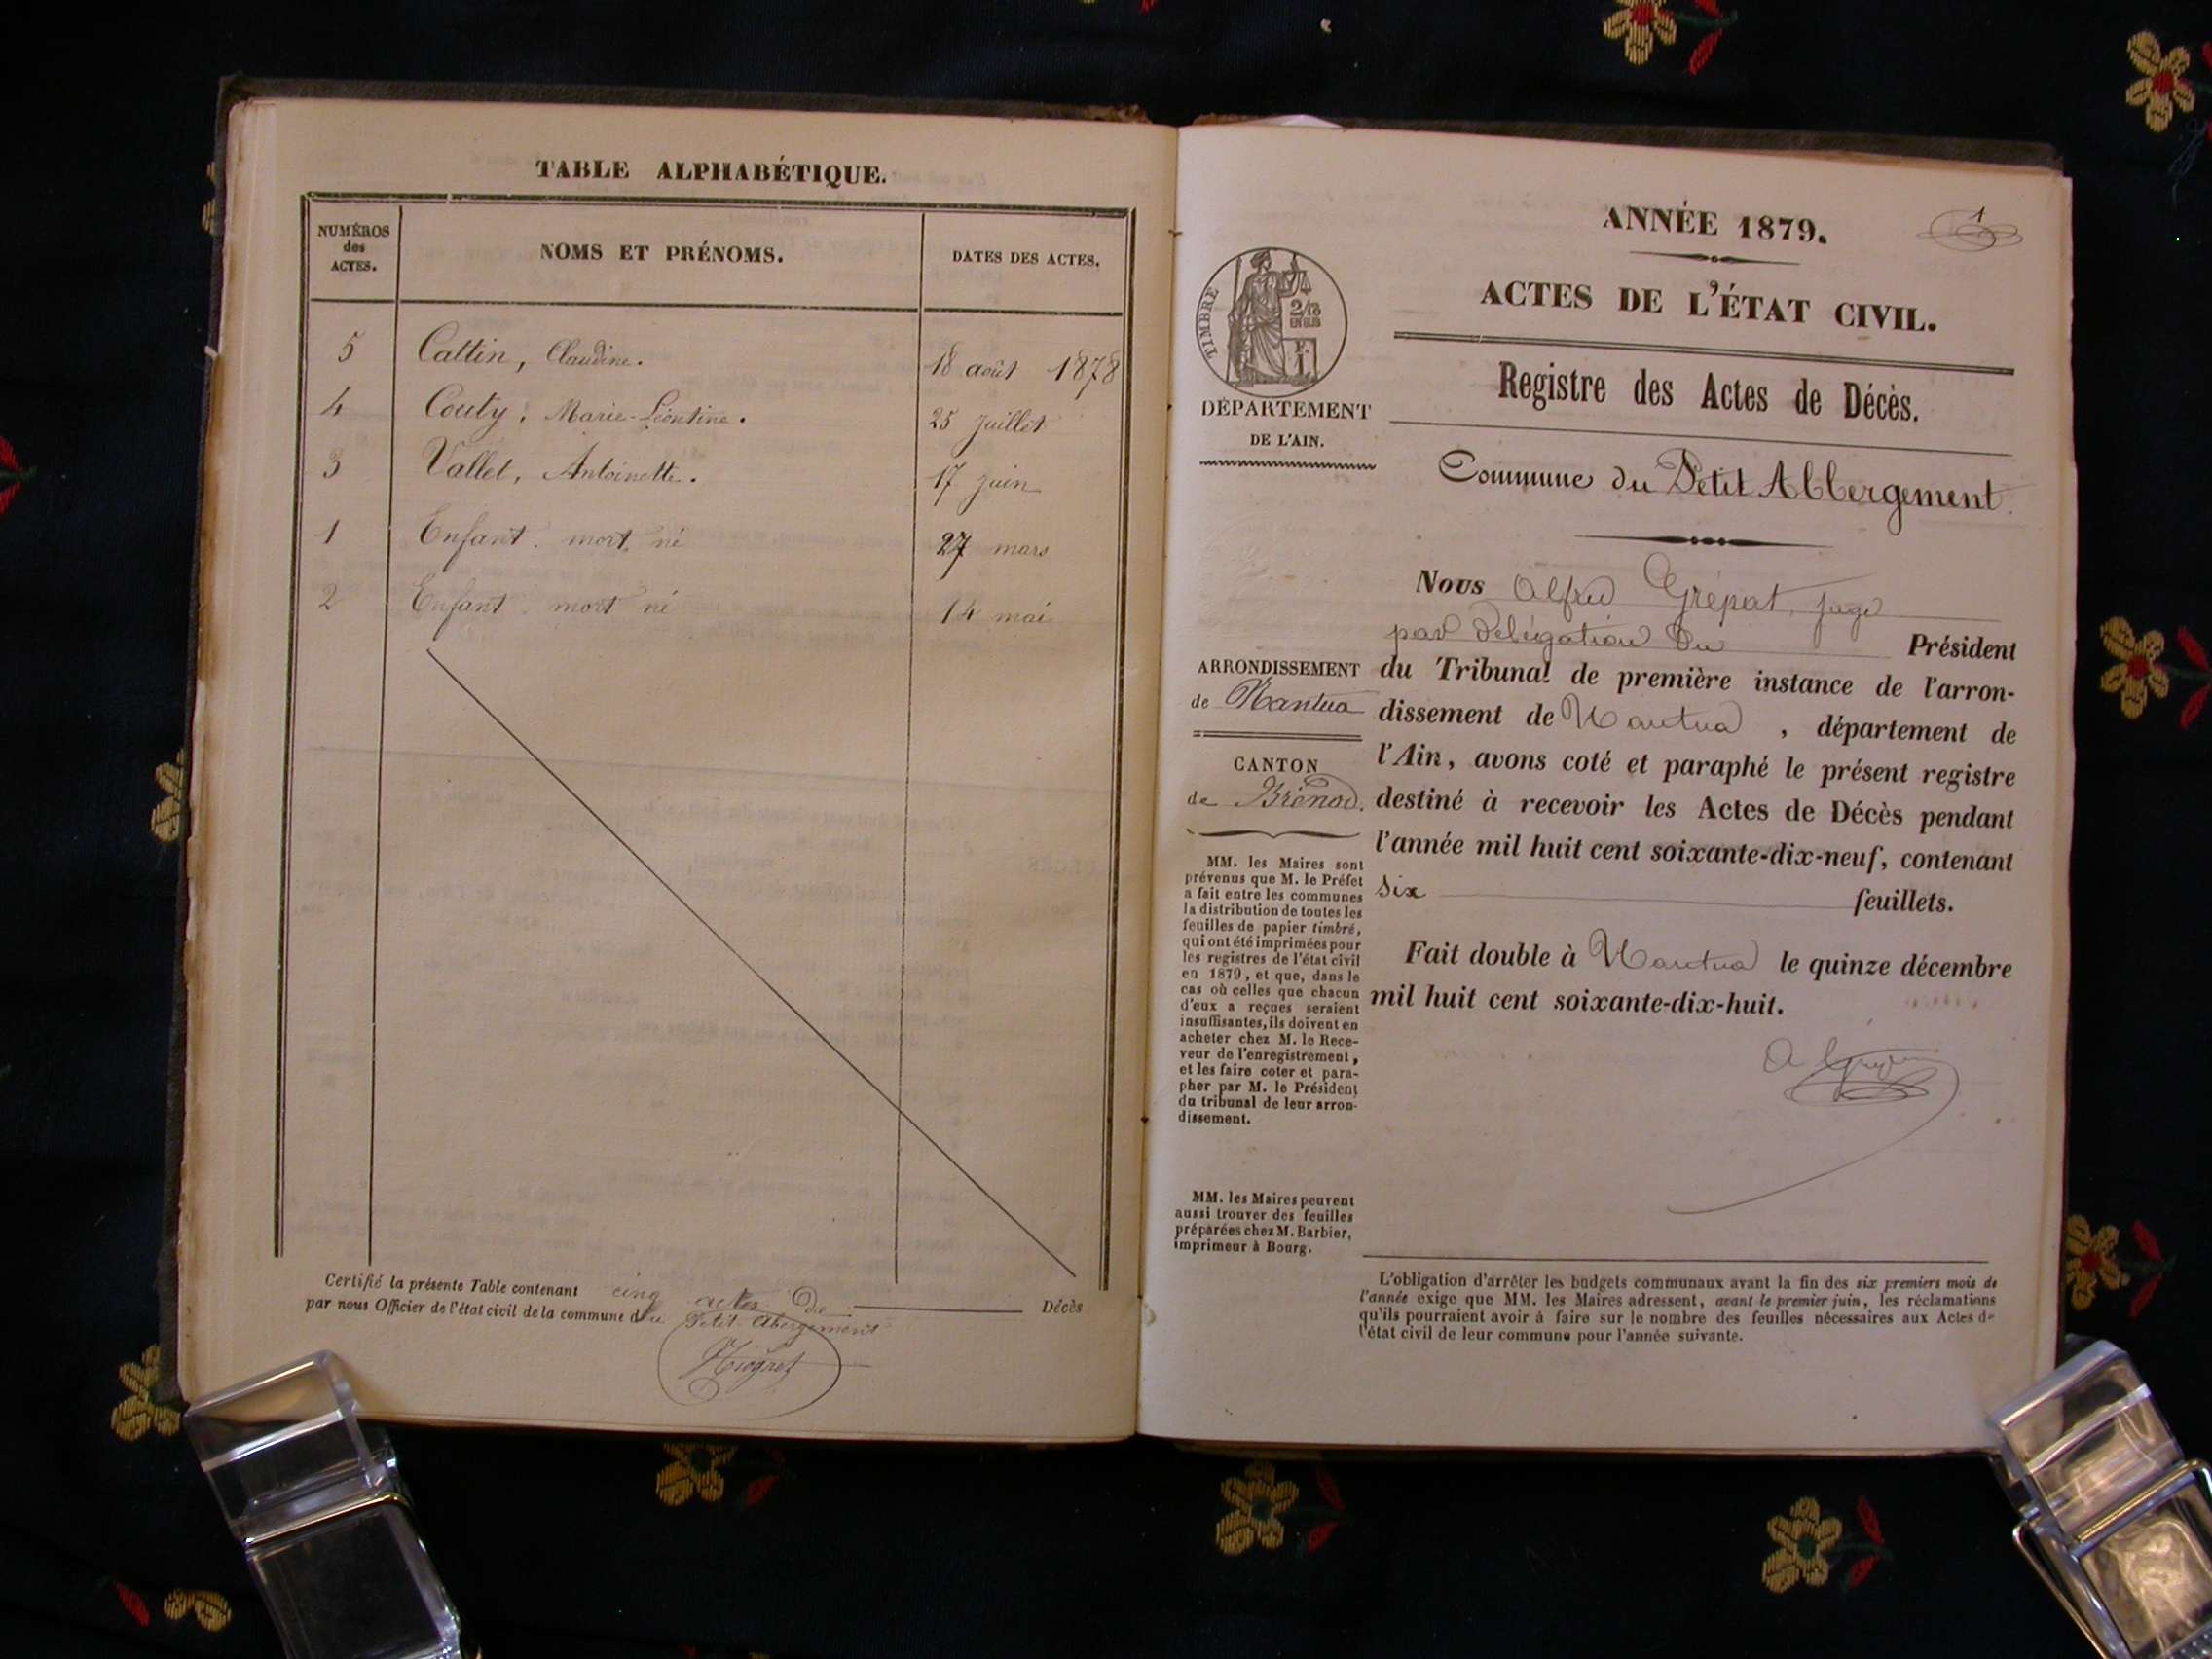 TABLE ALPHABÉTIQUE.
NUMÉROS des ACTES.
NOMS ET PRÉNOMS.
DATES DES ACTES.
5 Cattin, Claudine. 18 août 1878
4 Couty, Marie-Léontine. 25 juillet
3 Vallet, Antoinette. 17 juin
1 Enfant mort né 27 mars
2 Enfant mort né 14 mai
Certifié la présente Table contenant cinq actes de Décès
par nous Officier de l'état civil de la commune du Petit-Abergement
ANNÉE 1879.
1
ACTES DE L'ÉTAT CIVIL.
Registre des Actes de Décès.
TIMBRE
2/10 EN SUS
F. 1
DÉPARTEMENT
DE L'AIN.
Commune du Petit Abbergement.
Nous Alfred Grépat, juge
par délégation du Président
du Tribunal de première instance de l'arron-
dissement de Nantua, département de
l'Ain, avons coté et paraphé le présent registre
destiné à recevoir les Actes de Décès pendant
l'année mil huit cent soixante-dix-neuf, contenant
six feuillets.
Fait double à Nantua le quinze décembre
mil huit cent soixante-dix-huit.
ARRONDISSEMENT
de Nantua
CANTON
de Brénod.
MM. les Maires sont
prévenus que M. le Préfet
a fait entre les communes
la distribution de toutes les
feuilles de papier timbré,
qui ont été imprimées pour
les registres de l'état civil
en 1879, et que, dans le
cas où celles que chacun
d'eux a reçues seraient
insuffisantes, ils doivent en
acheter chez M. le Rece-
veur de l'enregistrement,
et les faire coter et para-
pher par M. le Président
du tribunal de leur arron-
dissement.
MM. les Maires peuvent
aussi trouver des feuilles
préparées chez M. Barbier,
imprimeur à Bourg.
L'obligation d'arrêter les budgets communaux avant la fin des six premiers mois de
l'année exige que MM. les Maires adressent, avant le premier juin, les réclamations
qu'ils pourraient avoir à faire sur le nombre des feuilles nécessaires aux Actes de
l'état civil de leur commune pour l'année suivante.